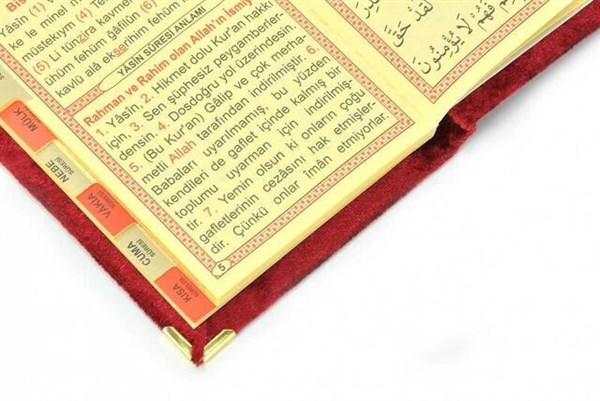 Yâsîn (1) V
ke le minel m
müstekıym (4) Te
(5) Li tünzira kavmen
ühüm fehüm ğâfilûn (6)
kavlü alâ ekserihim fehüm
YÂSİN SÛRESİ ANLAMI
Rahman ve Rahim olan Allah'ın İsmiyl
1. Yâsîn, 2. Hikmet dolu Kur'an hakk
için, 3. Sen şüphesiz, peygamberler-
densin, 4. Dosdoğru yol üzerindesin.
5. (Bu Kur'an) Gâlip ve çok merha-
metli Allah tarafından indirilmiştir. 6.
Babaları uyarılmamış, bu yüzden
kendileri de gaflet içinde kalmış bir
toplumu uyarman için indirilmiş-
tir. 7. Yemin olsun ki onların çoğu
gafletlerinin cezâsını hak etmişler-
dir. Çünkü onlar îmân etmiyorlar.
5
MÜLK
NEBE
SÛRESİ
VÂKIA
SÛRESİ
CUMA
SÛRESİ
KISA
SÛRELER
لَقَدْ حَقَّ
فَهُمْ لَا يُؤْمِنُونَ